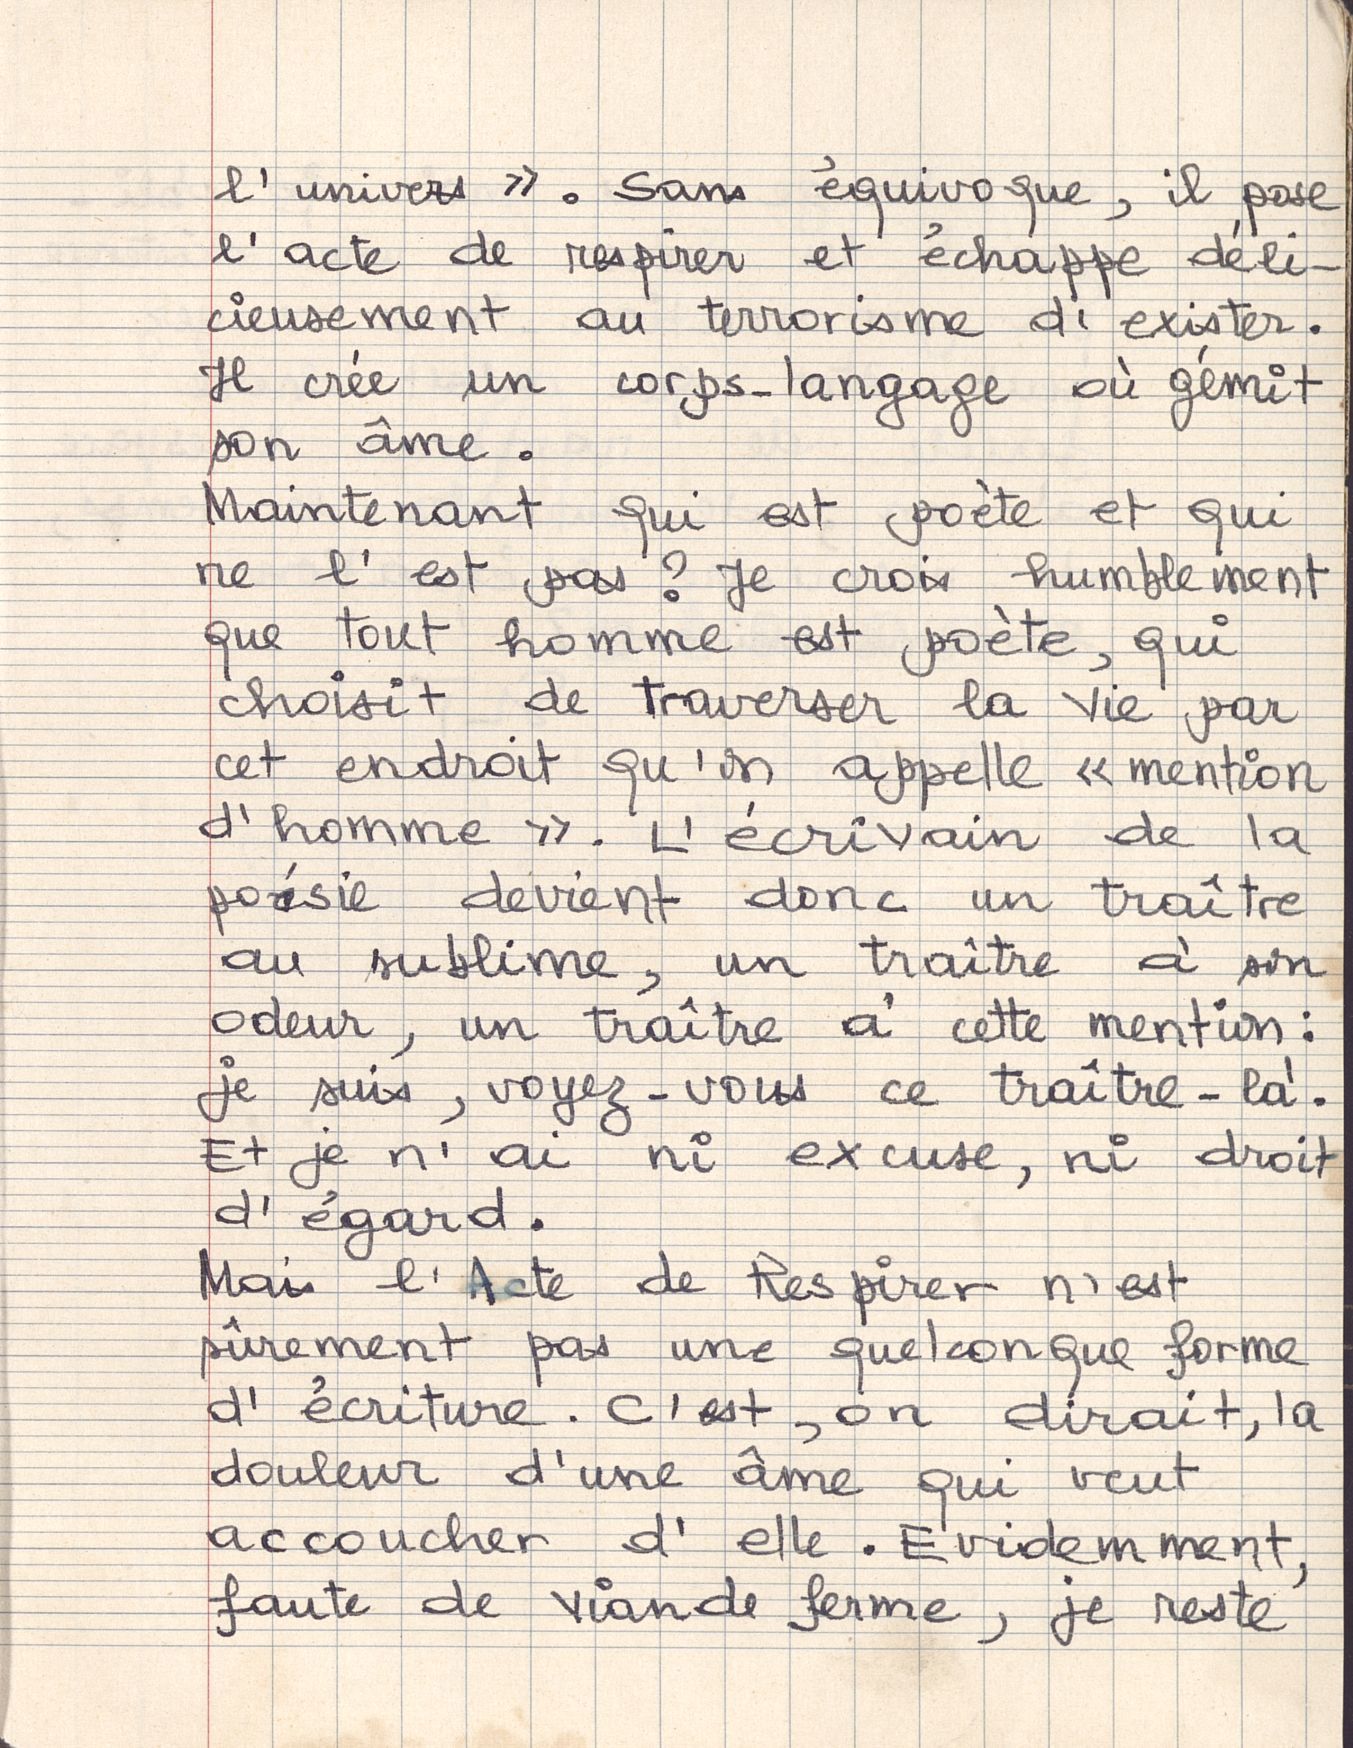 l'univers ». Sans équivoque, il pose
l'acte de respirer et échappe déli-
cieusement au terrorisme d'exister.
Il crée un corps-langage où gémit
son âme.
Maintenant qui est poète et qui
ne l'est pas ? Je crois humblement
que tout homme est poète, qui
choisit de traverser la vie par
cet endroit qu'on appelle « mention
d'homme ». L'écrivain de la
poésie devient donc un traître
au sublime, un traître à son
odeur, un traître à cette mention :
je suis, voyez-vous ce traître-là.
Et je n'ai ni excuse, ni droit
d'égard.
Mais l'Acte de Respirer n'est
sûrement pas une quelconque forme
d'écriture. C'est, on dirait, la
douleur d'une âme qui veut
accoucher d'elle. Evidemment,
faute de viande ferme, je reste